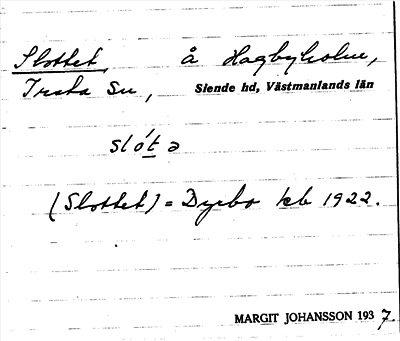 Slottet, å Hagbyholm,
Irsta Sn, Siende hd, Västmanlands län
slót ə
(Slottet) = Dyrbo kb 1922.
MARGIT JOHANSSON 1937.